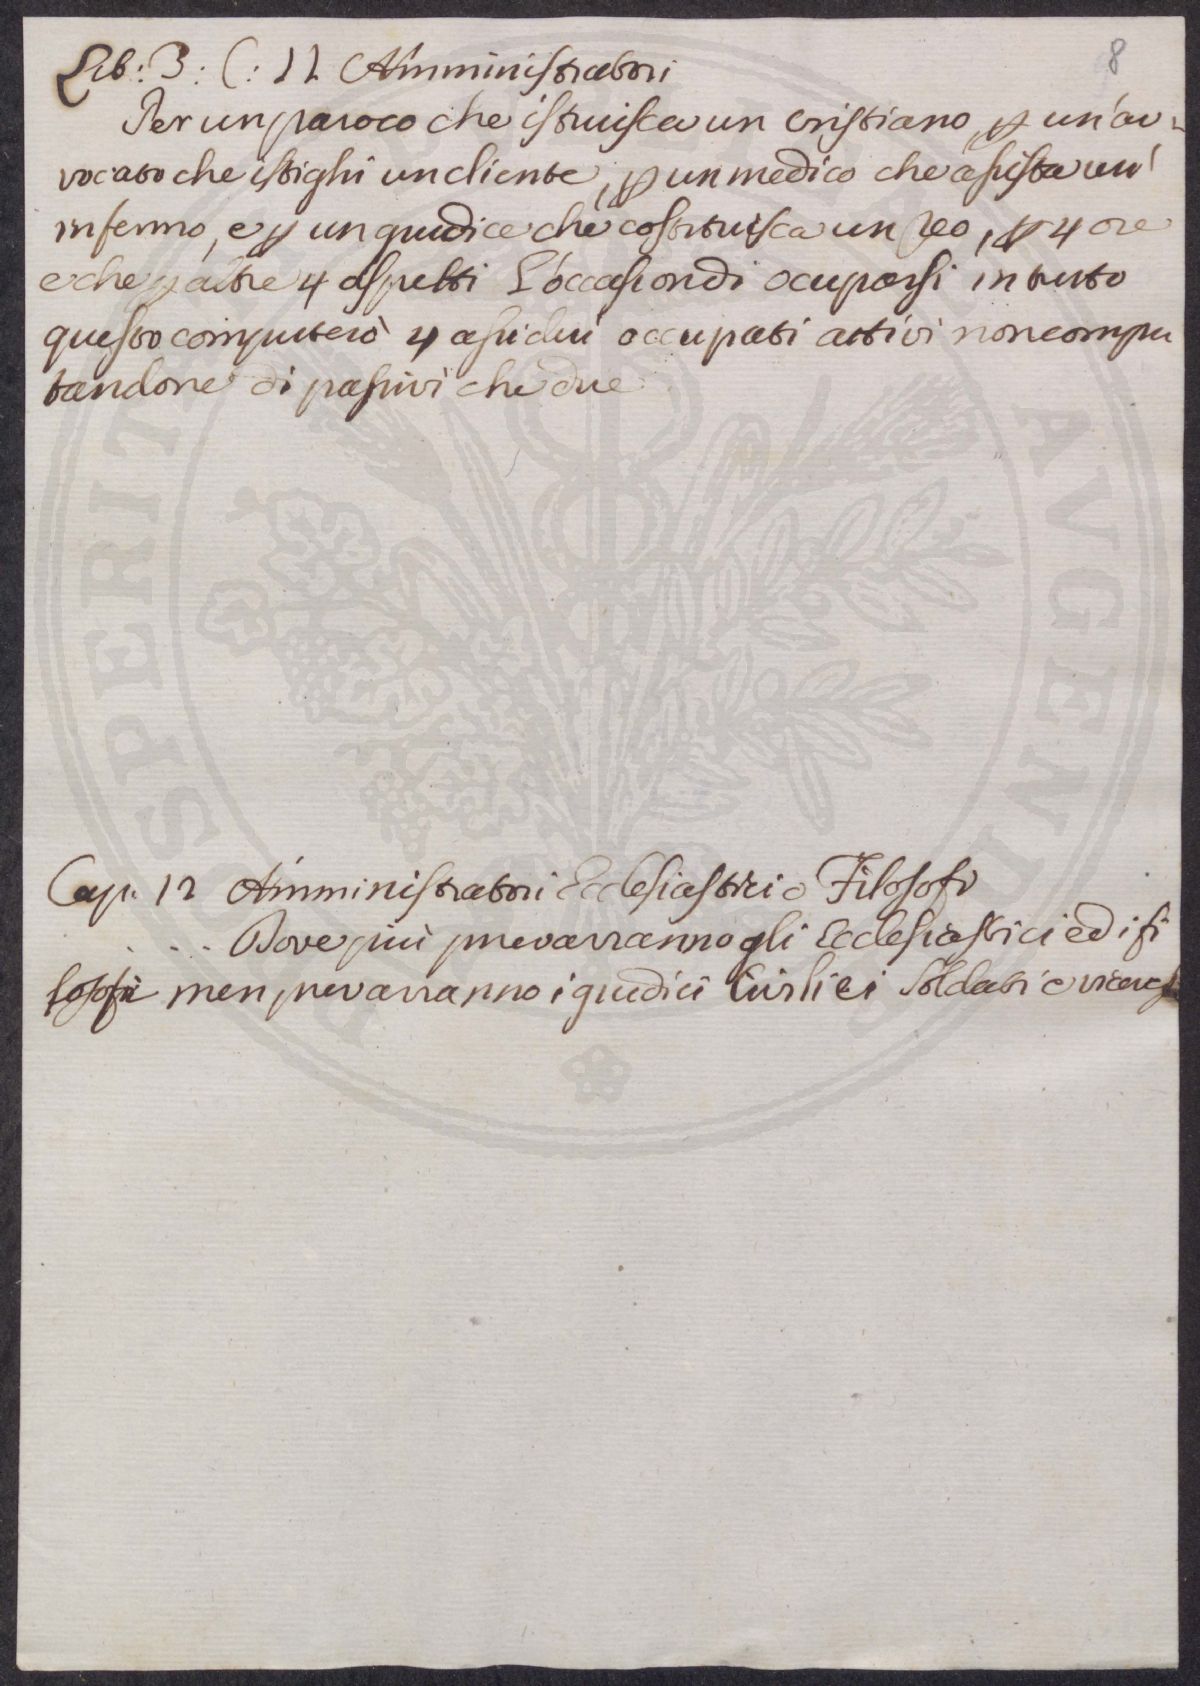 8
Lib: 3: C: 12 Amministratori
Per un paroco che istruisca un cristiano, p un'av=
vocato che istighi un cliente, p un medico che assista un'
infermo, e p un giudice che costituisca un reo, p 4 ore
e che p altre 4 aspetti l'occasion di ocuparsi in tutto
questo computerò 4 assidui occupati attivi non compu
tandone di passivi che due
Cap. 12 Amministratori Ecclesiastici e Filosofi
. . . . Dove più prevarranno gli Ecclesiastici ed i fi
losofi men prevarranno i giudici Curiali Soldati e vicevers
PERIT AVGEN